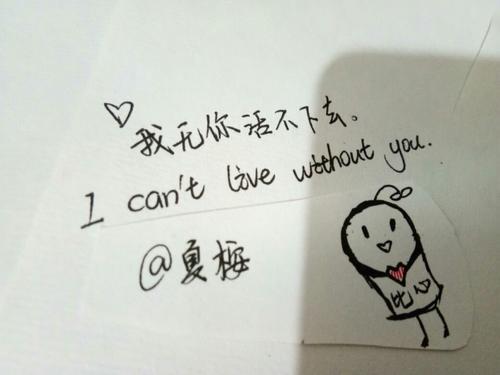 我无你活不下去。
I can't live without you.
@夏梅
比心